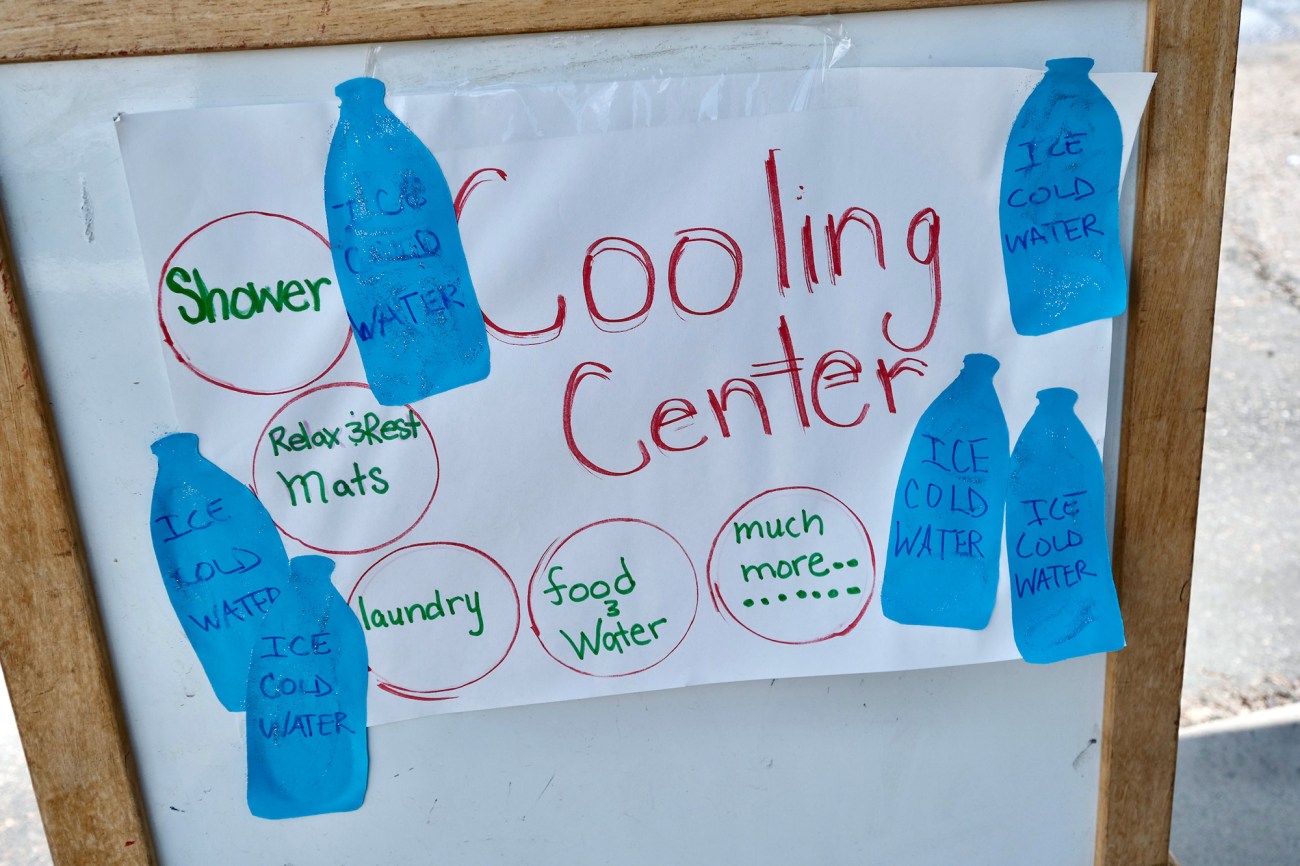 Cooling
Center
Shower
Relax & Rest
Mats
laundry
food
&
Water
much
more..
.......
ICE
COLD
WATER
ICE
COLD
WATER
ICE
COLD
WATER
ICE
COLD
WATER
ICE
COLD
WATER
ICE
COLD
WATER